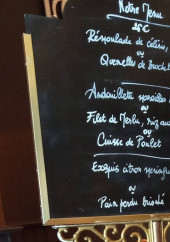 Notre Menu
25€
Rémoulade de céleri,
ou
Quenelles de brochet
Andouillette
ou
Filet de Merlu, riz
ou
Cuisse de Poulet
Exquis citron
ou
Pain perdu brioché